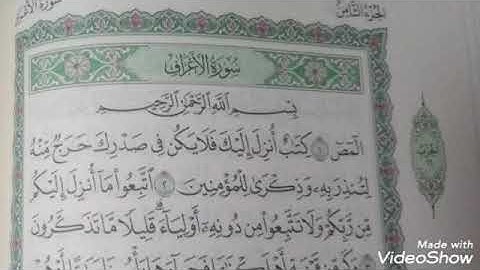 الجزء الثامن
سورة الأعراف
بِسْمِ اللَّهِ الرَّحْمَٰنِ الرَّحِيمِ
الٓمٓصٓ ١ كِتَٰبٌ أُنزِلَ إِلَيْكَ فَلَا يَكُن فِى صَدْرِكَ حَرَجٌ مِّنْهُ
لِتُنذِرَ بِهِۦ وَذِكْرَىٰ لِلْمُؤْمِنِينَ ٢ ٱتَّبِعُوا۟ مَآ أُنزِلَ إِلَيْكُم
مِّن رَّبِّكُمْ وَلَا تَتَّبِعُوا۟ مِن دُونِهِۦٓ أَوْلِيَآءَ ۗ قَلِيلًا مَّا تَذَكَّرُونَ
Made with
VideoShow